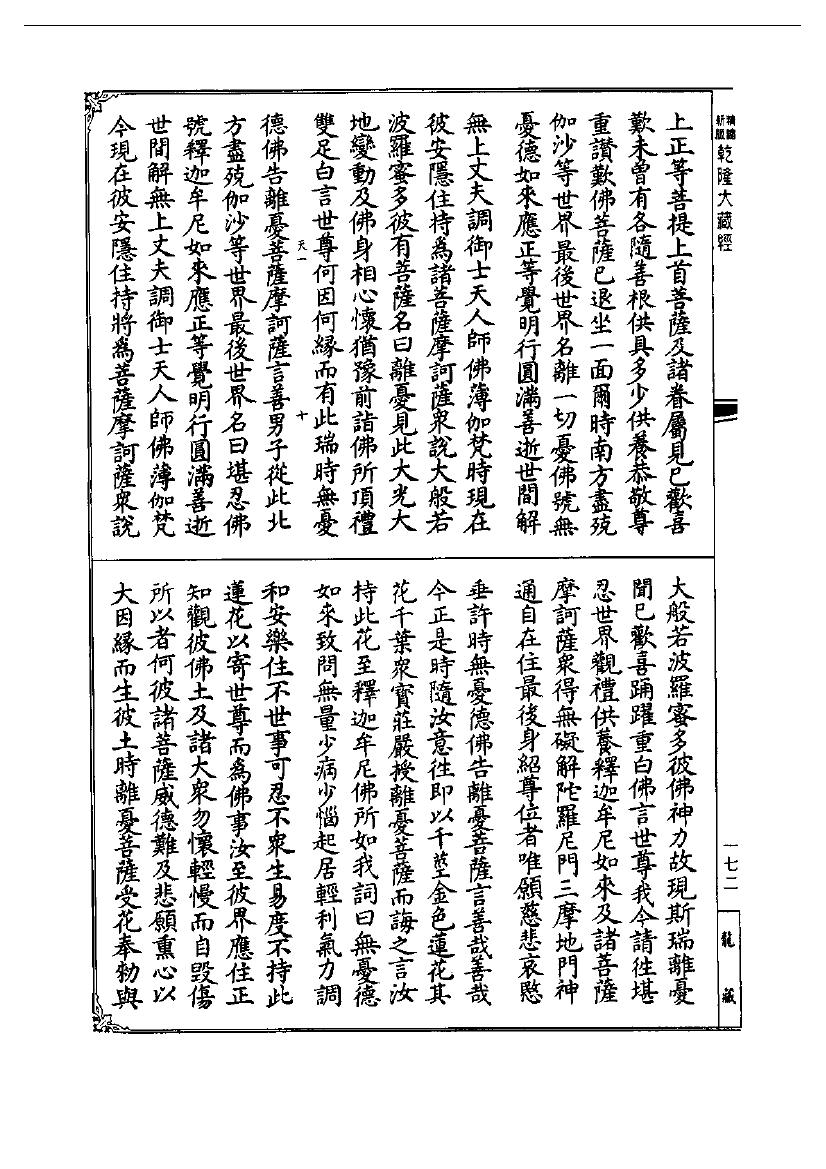 精編新版
乾隆大藏經
上正等菩提上首菩薩及諸眷屬見已歡喜
歎未曾有各隨善根供具多少供養恭敬尊
重讚歎佛菩薩已退坐一面爾時南方盡殑
伽沙等世界最後世界名離一切憂佛號無
憂德如來應正等覺明行圓滿善逝世間解
無上丈夫調御士天人師佛薄伽梵時現在
彼安隱住持為諸菩薩摩訶薩衆說大般若
波羅蜜多彼有菩薩名曰離憂見此大光大
地變動及佛身相心懷猶豫前詣佛所頂禮
雙足白言世尊何因何緣而有此瑞時無憂
天一
十
德佛告離憂菩薩摩訶薩言善男子從此北
方盡殑伽沙等世界最後世界名曰堪忍佛
號釋迦牟尼如來應正等覺明行圓滿善逝
世間解無上丈夫調御士天人師佛薄伽梵
今現在彼安隱住持將為菩薩摩訶薩衆說
大般若波羅蜜多彼佛神力故現斯瑞離憂
聞已歡喜踊躍重白佛言世尊我今請往堪
忍世界觀禮供養釋迦牟尼如來及諸菩薩
摩訶薩衆得無礙解陀羅尼門三摩地門神
通自在住最後身紹尊位者唯願慈悲哀愍
垂許時無憂德佛告離憂菩薩言善哉善哉
今正是時隨汝意往即以千莖金色蓮花其
花千葉衆寶莊嚴授離憂菩薩而誨之言汝
持此花至釋迦牟尼佛所如我詞曰無憂德
如來致問無量少病少惱起居輕利氣力調
和安樂住不世事可忍不衆生易度不持此
蓮花以寄世尊而為佛事汝至彼界應住正
知觀彼佛土及諸大衆勿懷輕慢而自毀傷
所以者何彼諸菩薩威德難及悲願熏心以
大因緣而生彼土時離憂菩薩受花奉勅與
一七二
龍藏